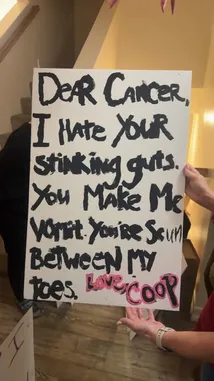 DEAR CANCER,
I HATE YOUR
stinking guts.
YOU MAKE ME
VOMIT. YOU'RE SCUM
BETWEEN MY
TOES. LOVE, COOP